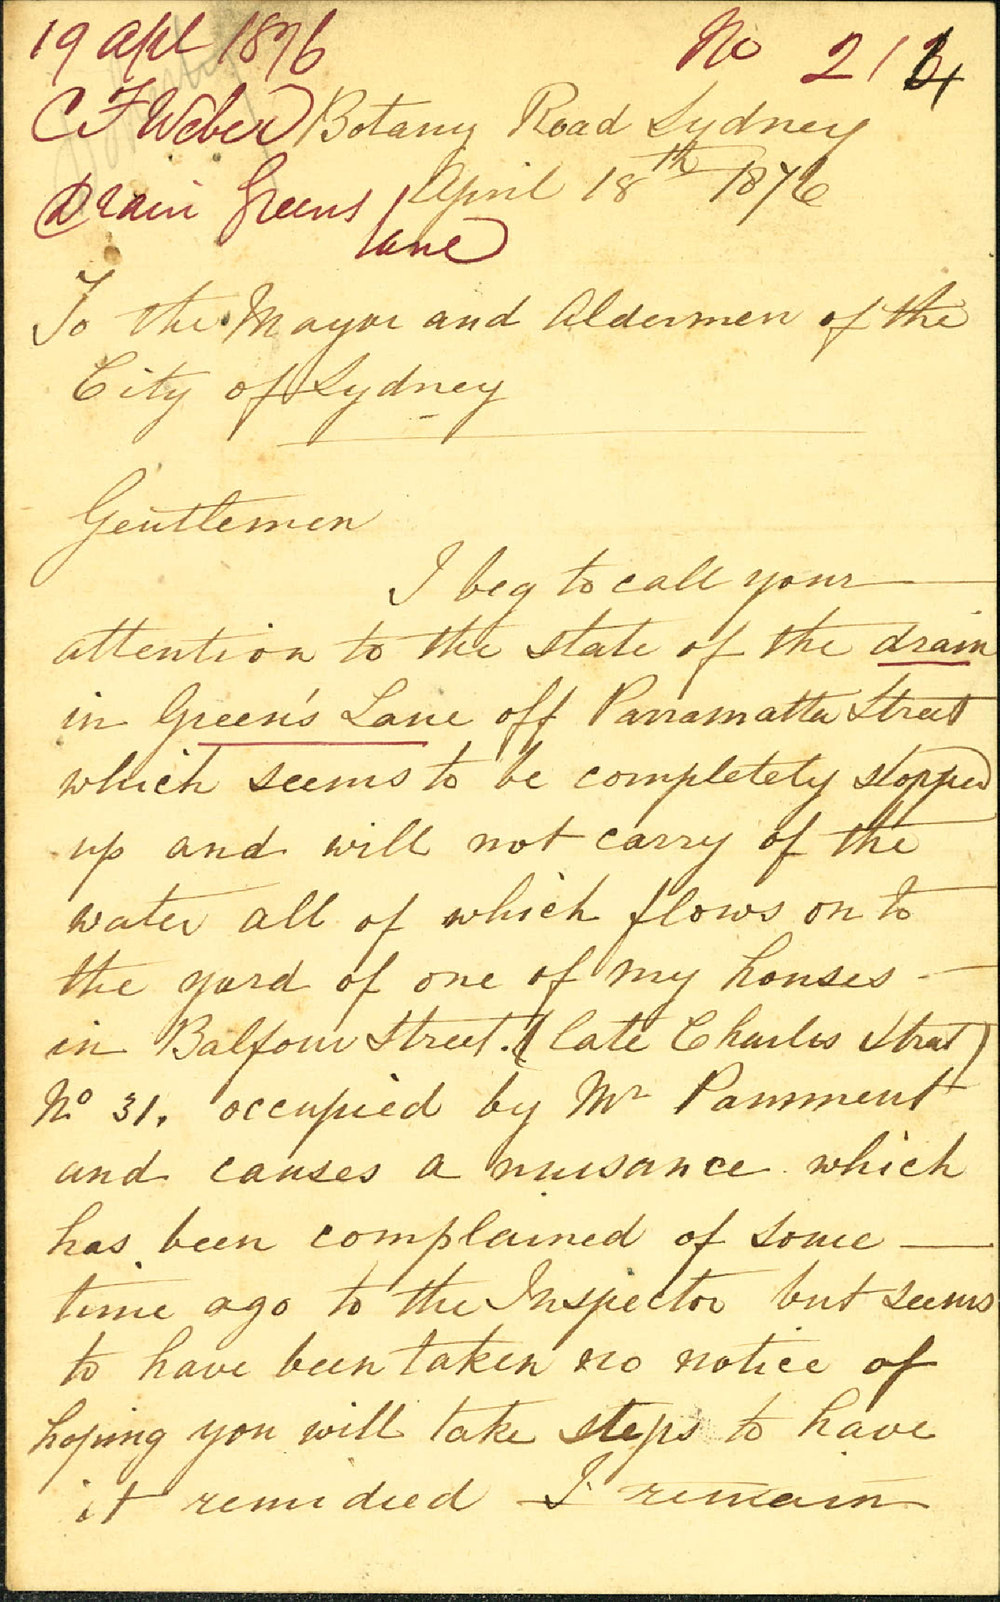 19 Apl 1876
No 214
C F Weber
Botany Road Sydney
April 18th 1876
Drain Greens
lane
To the Mayor and Aldermen of the
City of Sydney
Gentlemen
I beg to call your
attention to the state of the drain
in Green's Lane off Parramatta Street
which seems to be completety stopped
up and will not carry of the
water all of which flows on to
the yard of one of my houses
in Balfour Street. (late Charles Street)
No 31. occupied by Mr Pamment
and causes a nuisance which
has been complained of some
time ago to the Inspector but seems
to have been taken no notice of
hoping you will take steps to have
it remidied I remain